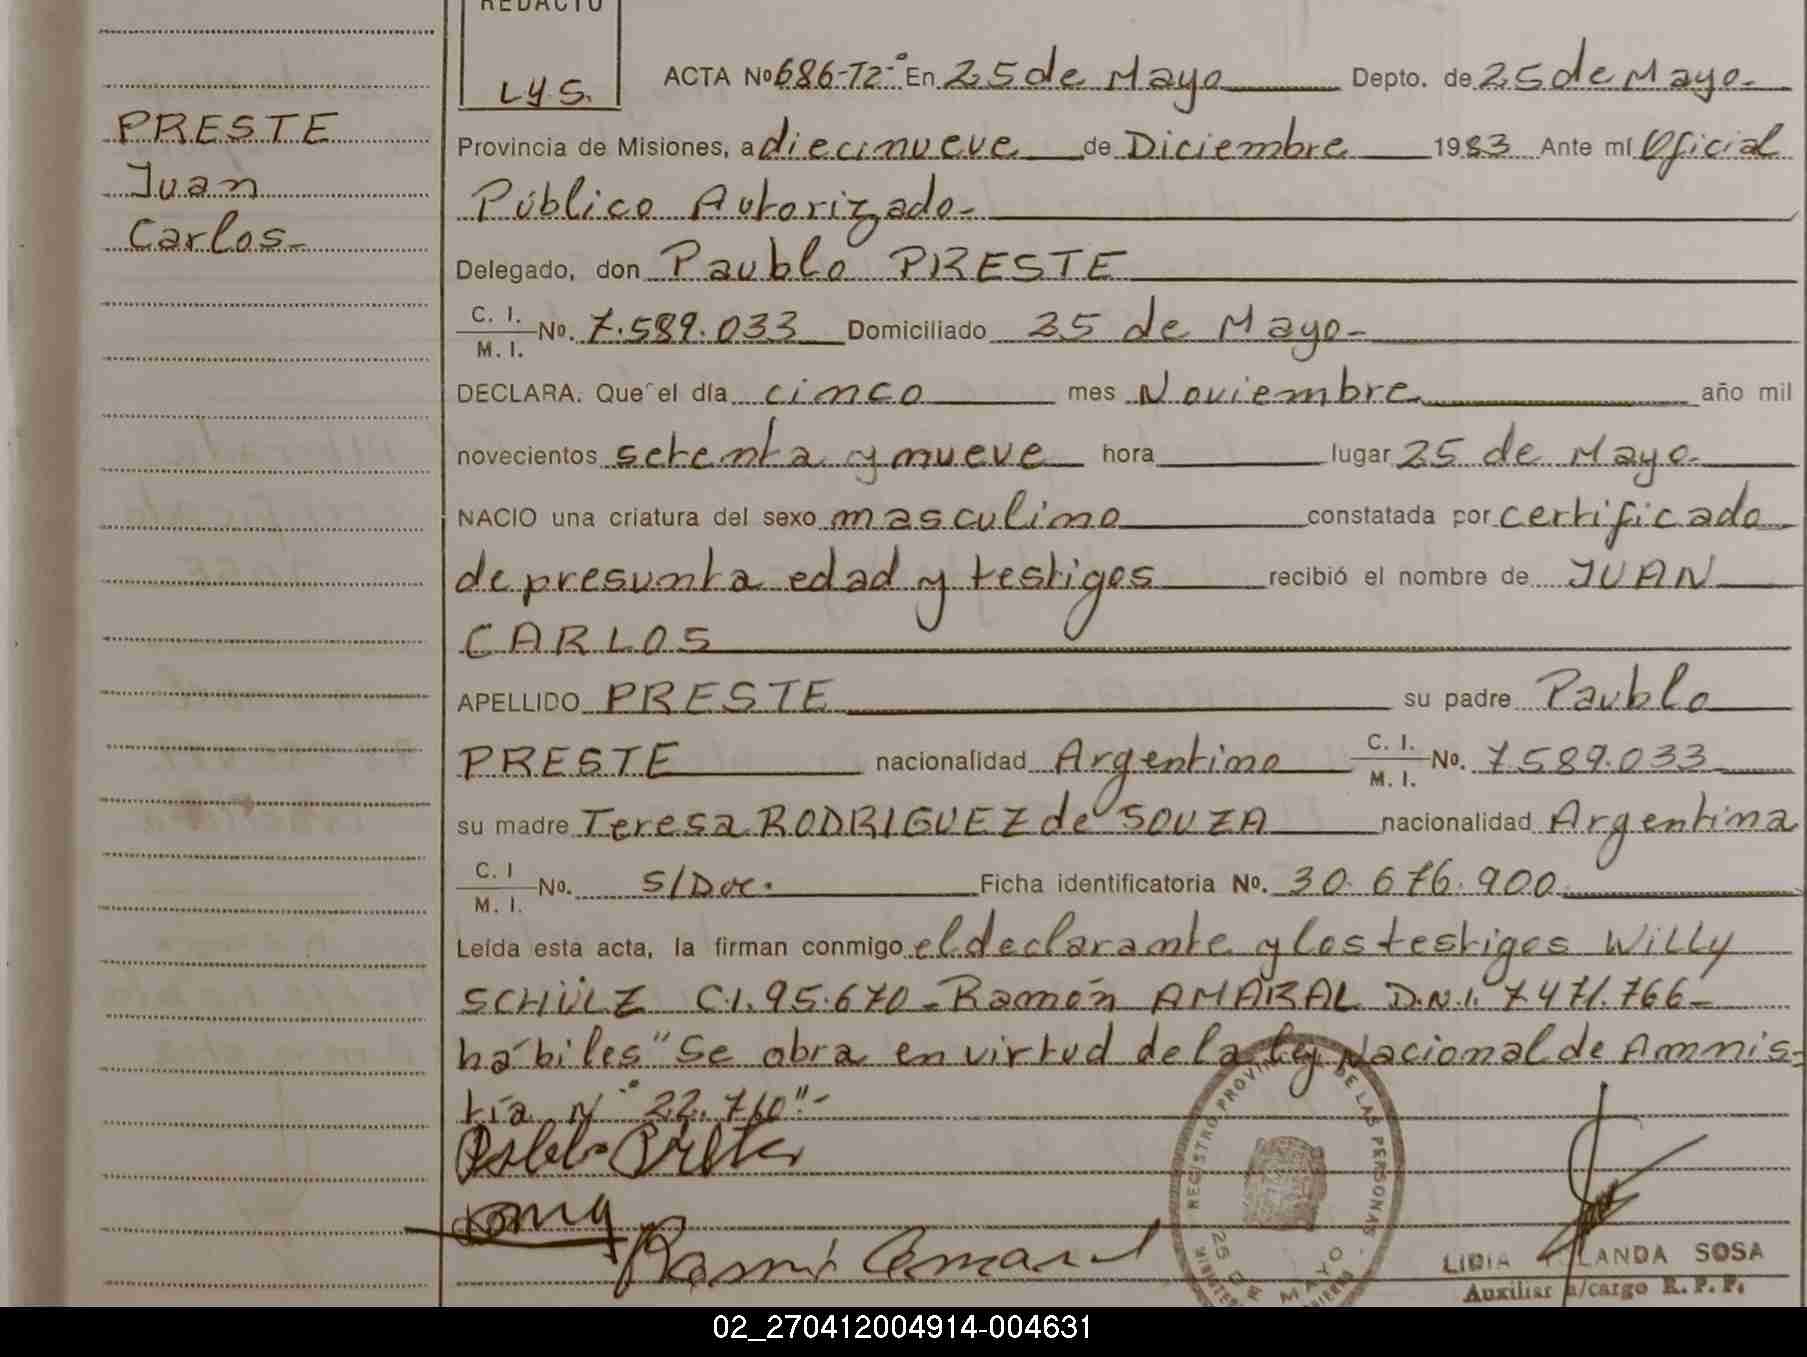 REDACTO
LYS.
PRESTE
Juan
Carlos-
ACTA Nº 686-T2-º En 25 de Mayo Depto. de 25 de Mayo-
Provincia de Misiones, a diecinueve de Diciembre 1983 Ante mí Oficial
Público Autorizado-
Delegado, don Paublo PRESTE
C. I.
M. I. Nº. 7.589.033 Domiciliado 25 de Mayo-
DECLARA. Que el día cinco mes Noviembre año mil
novecientos setenta y nueve hora lugar 25 de Mayo-
NACIO una criatura del sexo masculino constatada por certificado
de presunta edad y testigos recibió el nombre de JUAN
CARLOS
APELLIDO PRESTE su padre Paublo
PRESTE nacionalidad Argentino C. I.
M. I. Nº. 7.589.033
su madre Teresa RODRIGUEZ de SOUZA nacionalidad Argentina
C. I
M. I. Nº. S/Doc. Ficha identificatoria Nº. 30.676.900
Leída esta acta, la firman conmigo el declarante y los testigos WILLY
SCHÜLZ C.I. 95.670- Ramón AMARAL D.N.I. 7.471.766-
hábiles "Se obra en virtud de la ley Nacional de Amnis-
tía Nº 22.710"-
Ramón Amaral
REGISTRO PROVINCIAL DE LAS PERSONAS
25 DE MAYO
LIDIA LANDA SOSA
Auxiliar a/cargo R. P. P.
02_270412004914-004631